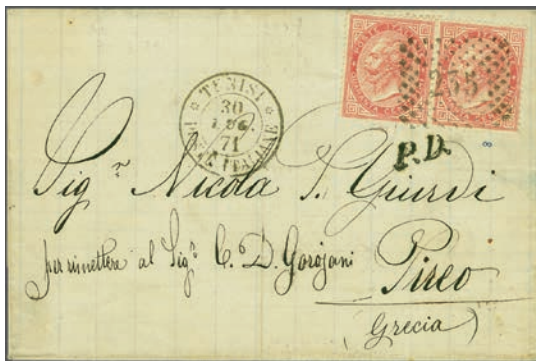 TUNISI
30
LUG.
71
POSTE ITALIANE
POSTE ITALIANE
235
P.D.
Sig.r Nicola S. Giurdi
per rimettere al Sig.r C. D. Gorojani
Pireo
(Grecia)